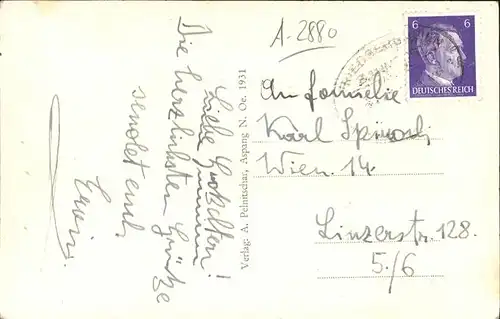 A-2880
6 6
DEUTSCHES REICH
An Familie
Karl
Wien 14.
Linzerstr. 128.
5/6
Verlag: A. Pelnitschar, Aspang N. Oe. 1931
Liebe
Die herzlichsten Grüße
sendet euch
Erwin.